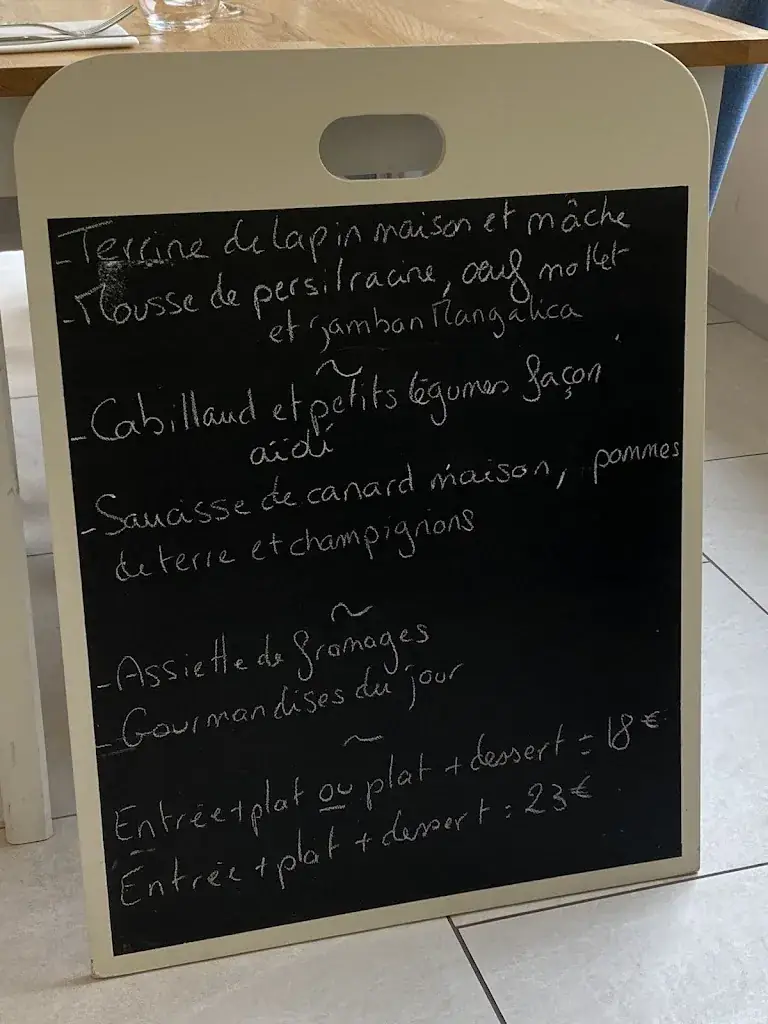 - Terrine de lapin maison et mâche
- Mousse de persil racine, oeuf mollet
et jambon Mangalica
~
- Cabillaud et petits légumes façon
aïoli
- Saucisse de canard maison, pommes
de terre et champignons
~
- Assiette de fromages
- Gourmandises du jour
~
Entrée + plat ou plat + dessert = 18 €
Entrée + plat + dessert : 23 €